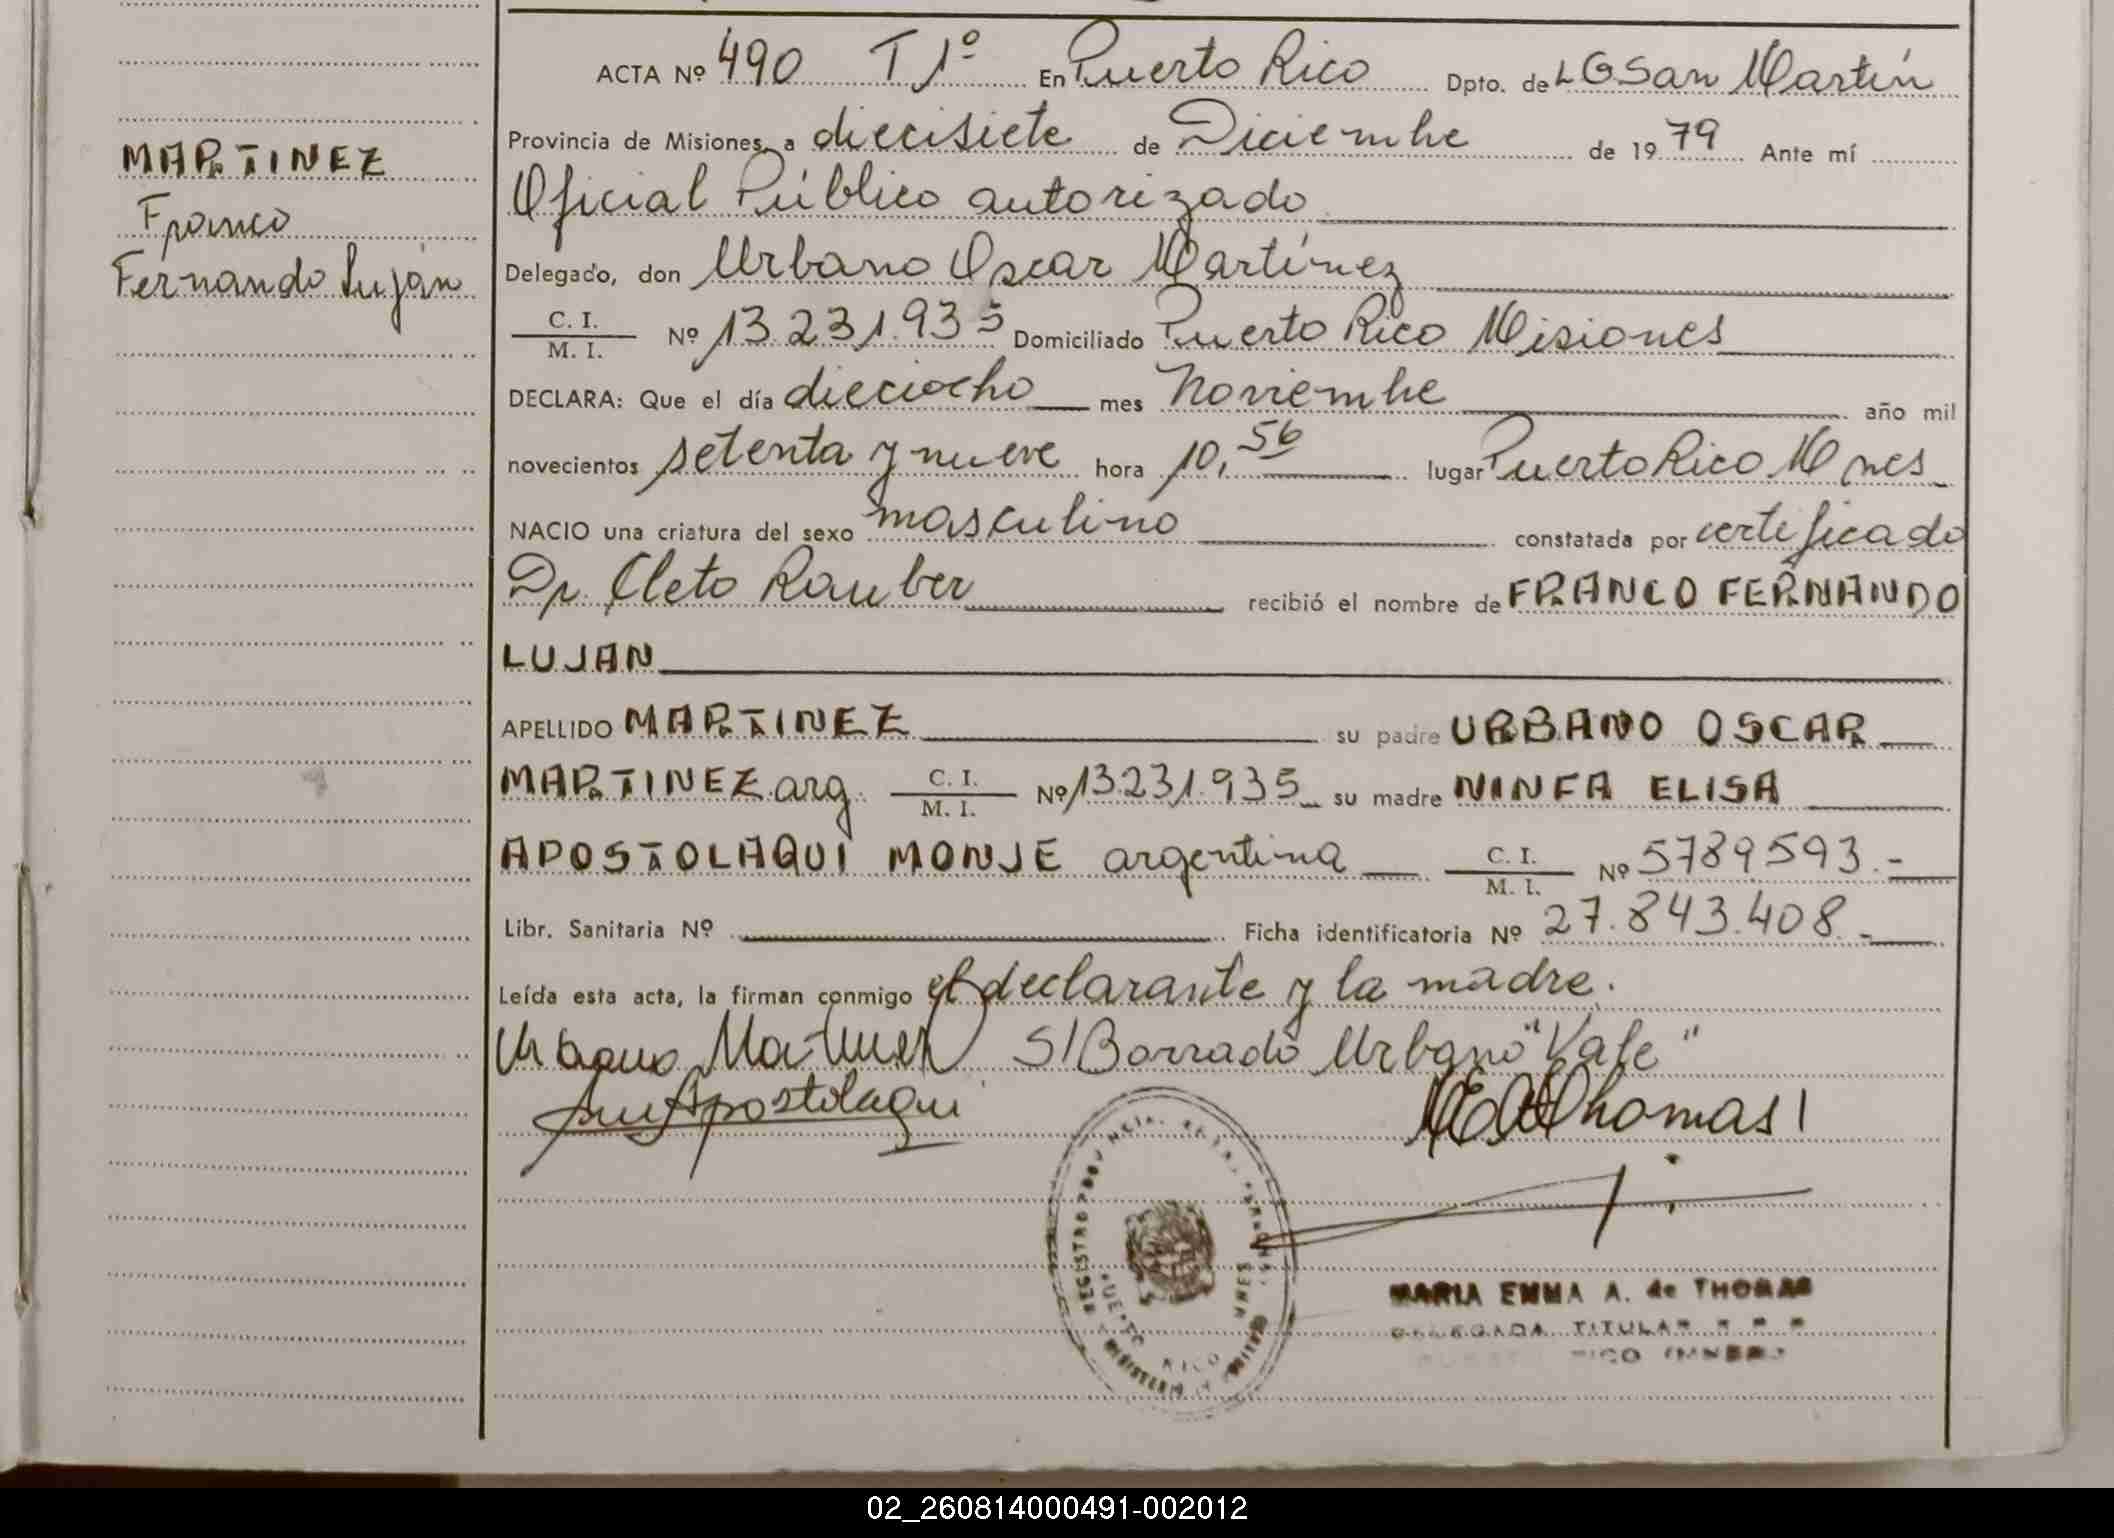 ACTA Nº 490 T 1º En Puerto Rico Dpto. de L G San Martín
Provincia de Misiones, a diecisiete de Diciembre de 19 79 Ante mí
MARTINEZ
Oficial Público autorizado
Franco
Delegado, don Urbano Oscar Martínez
Fernando Luján
C. I. / M. I. Nº 13.231.935 Domiciliado Puerto Rico Misiones
DECLARA: Que el día dieciocho mes Noviembre año mil
novecientos setenta y nueve hora 10,56 lugar Puerto Rico Mnes
NACIO una criatura del sexo masculino constatada por certificado
Dr. Cleto Rauber recibió el nombre de FRANCO FERNANDO
LUJAN
APELLIDO MARTINEZ su padre URBANO OSCAR
MARTINEZ arg. C. I. / M. I. Nº 13.231.935 su madre NINFA ELISA
APOSTOLAQUI MONJE argentina C. I. / M. I. Nº 5789593.-
Libr. Sanitaria Nº Ficha identificatoria Nº 27.843.408.-
Leída esta acta, la firman conmigo el declarante y la madre.
Urbano Martinez S/Borrado Urbano "Vale"
Apostolaqui Thomas
PUERTO RICO
MARIA EMMA A. de THOMAS
DELEGADA TITULAR R P P
PUERTO RICO (MNES.)
02_260814000491-002012